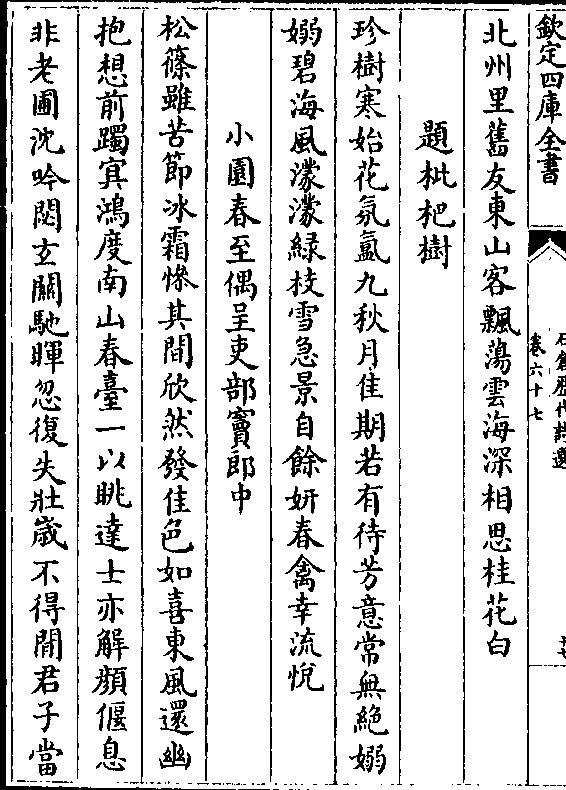 欽定四庫全書
石倉歷代詩選
卷六十七
北州里舊友東山客飄蕩雲海深相思桂花白
題枇杷樹
珍樹寒始花氛氳九秋月佳期若有待芳意常無絕嫋
嫋碧海風濛濛綠枝雪急景自餘妍春禽幸流悅
小園春至偶呈吏部竇郎中
松篠雖苦節冰霜慘其間欣然發佳色如喜東風還幽
抱想前躅冥鴻度南山春臺一以眺達士亦解顏偃息
非老圃沈吟閟玄關馳暉忽復失壯歲不得閒君子當